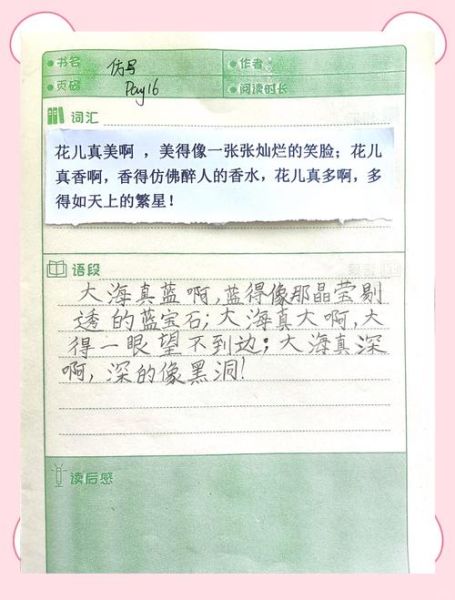 书名 仿写 作者
页码 Day16 阅读时长
词汇
花儿真美啊，美得像一张张灿烂的笑脸；花儿
真香啊，香得仿佛醉人的香水，花儿真多啊，多
得如天上的繁星！
语段
大海真蓝啊，蓝得像那晶莹剔
透的蓝宝石；大海真大啊，大
得一眼望不到边；大海真深
啊，深的像黑洞！
读后感